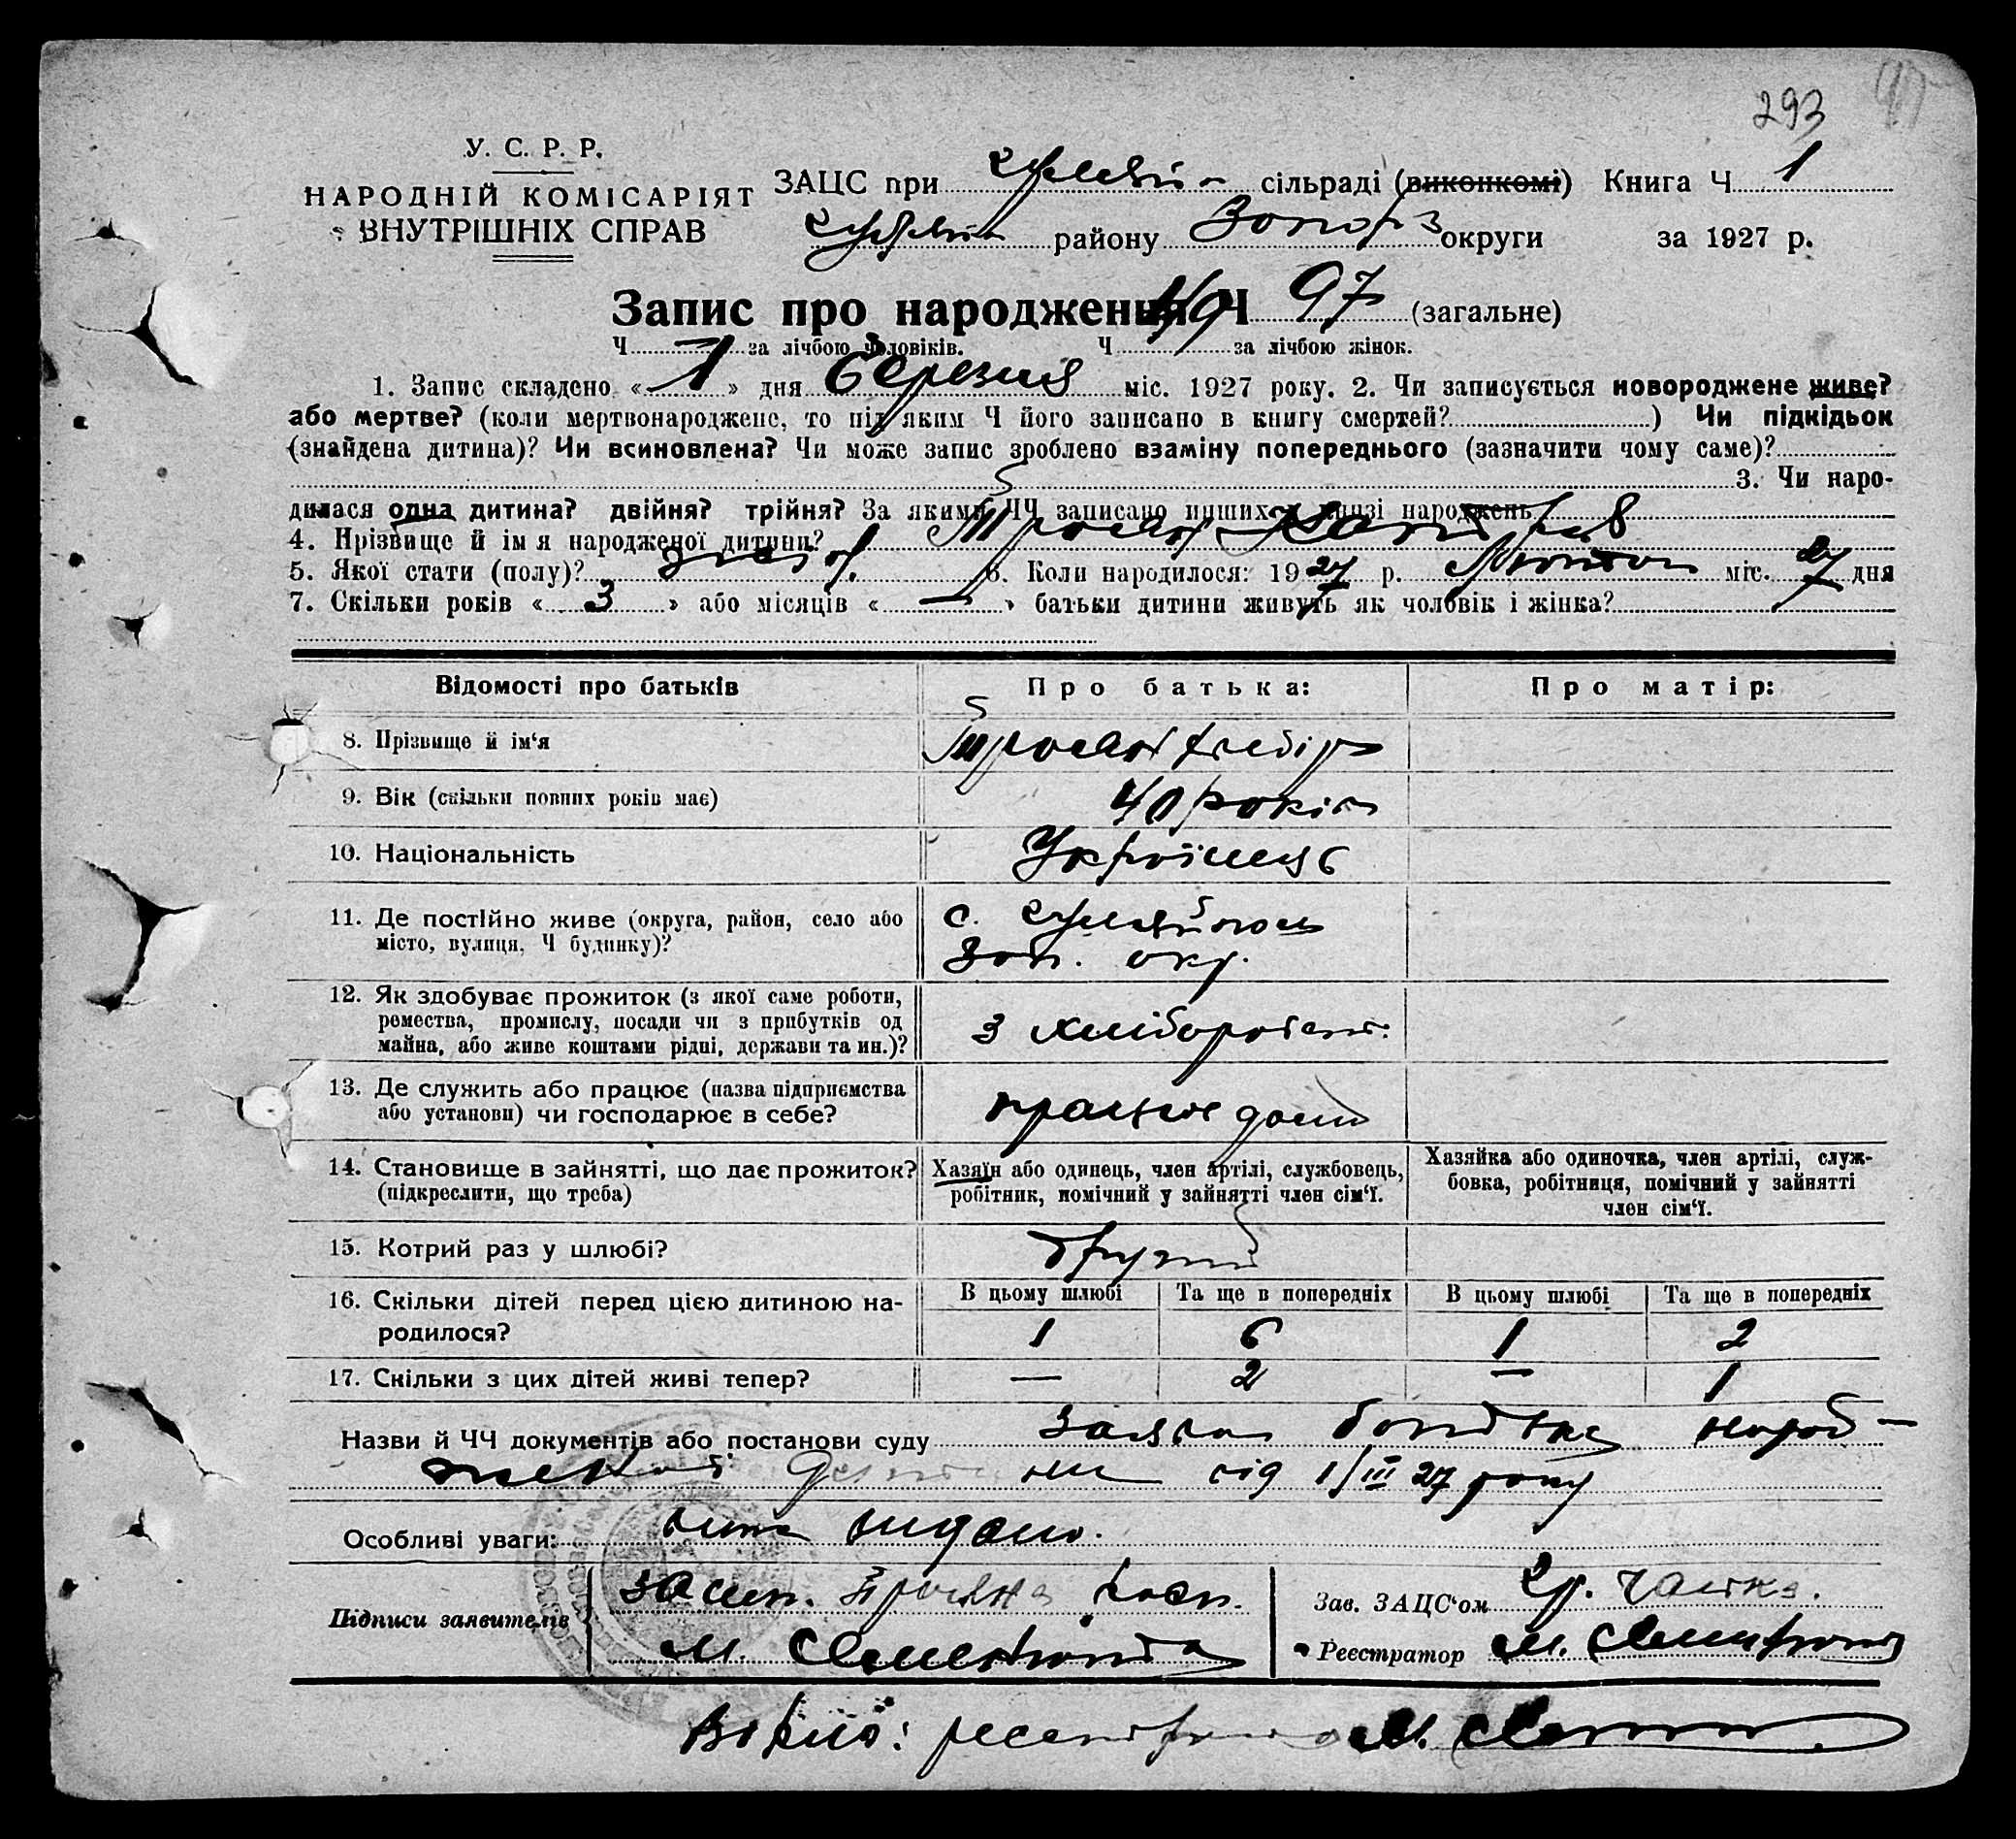 293
У. С. Р. Р.
НАРОДНІЙ КОМІСАРІЯТ
ВНУТРІШНІХ СПРАВ
ЗАЦС при сільраді (виконкомі) Книга Ч 1
району Запоріз округи за 1927 р.
Запис про народження Ч 97 (загальне)
Ч за лічбою чоловіків. Ч 49 за лічбою жінок.
1. Запис складено « 1 » дня Березня міс. 1927 року. 2. Чи записується новороджене живе?
або мертве? (коли мертвонароджене, то під яким Ч його записано в книгу смертей? ) Чи підкідьок
(знайдена дитина)? Чи всиновлена? Чи може запис зроблено взаміну попереднього (зазначити чому саме)?
3. Чи наро-
дилася одна дитина? двійня? трійня? За якими ЧЧ записано инших в книзі народжень
4. Прізвище й ім я народженої дитини? Троян
5. Якої стати (полу)? жіноч. 6. Коли народилося: 1927 р. Лютого міс. 27 дня
7. Скільки років « 3 » або місяців « — » батьки дитини живуть як чоловік і жінка?
Відомості про батьків
Про батька:
Про матір:
8. Прізвище й ім‘я
Троян
9. Вік (скільки повних років має)
40 років
10. Національність
Українець
11. Де постійно живе (округа, район, село або
місто, вулиця, Ч будинку)?
с. Гуляйполе
Зап. окр.
12. Як здобуває прожиток (з якої саме роботи,
ремества, промислу, посади чи з прибутків од
майна, або живе коштами рідні, держави та ин.)?
з хліборобст.
13. Де служить або працює (назва підприємства
або установи) чи господарює в себе?
працює дома
14. Становище в зайнятті, що дає прожиток?
(підкреслити, що треба)
Хазяїн або одинець, член артілі, службовець,
робітник, помічний у зайнятті член сім‘ї.
Хазяйка або одиночка, член артілі, служ-
бовка, робітниця, помічний у зайнятті
член сім‘ї.
15. Котрий раз у шлюбі?
другий
16. Скільки дітей перед цією дитиною на-
родилося?
В цьому шлюбі Та ще в попередніх В цьому шлюбі Та ще в попередніх
1 6 1 2
17. Скільки з цих дітей живі тепер?
— 2 — 1
Назви й ЧЧ документів або постанови суду заява батька
від 1/III 27 року
Особливі уваги: видано.
Підписи заявителів
Троян
М.
Зав. ЗАЦС‘ом
Реєстратор М.
Вірно: реєстратор М.